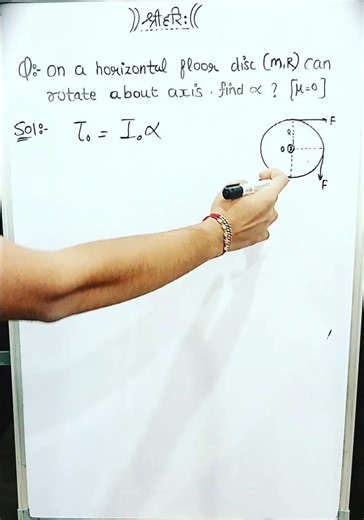 ))श्रीहरि:((
Q:- on a horizontal floor disc (m,R) can
rotate about axis. find α ? [μ=0]
Sol:- τ₀ = I₀α
F
R
O
F